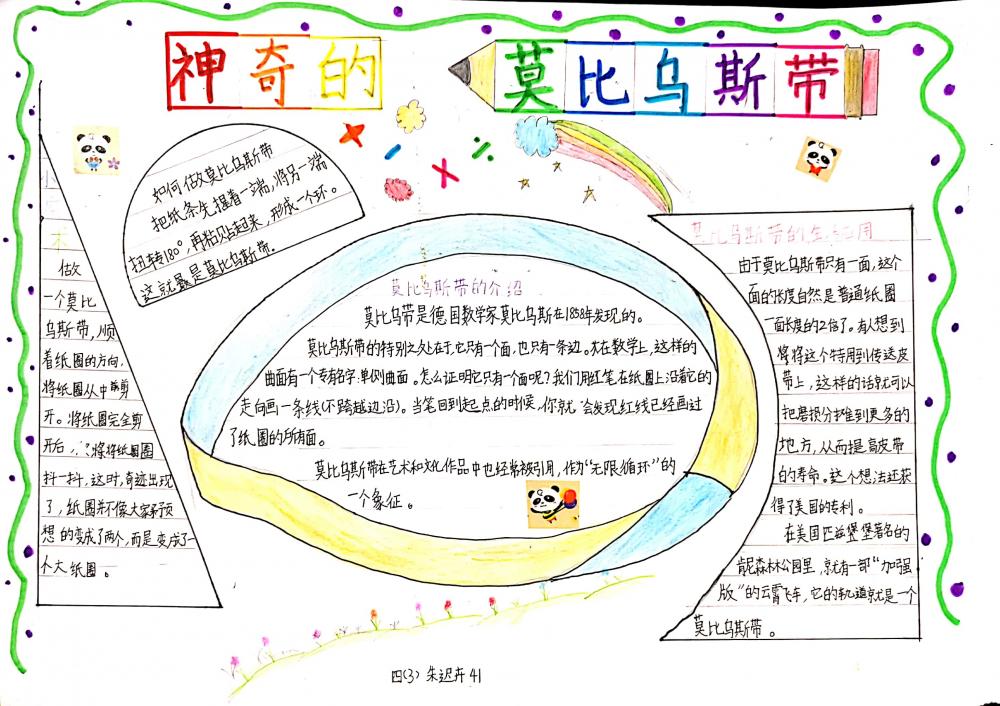 神奇的
莫比乌斯带
如何做莫比乌斯带
把纸条先握着一端,将另一端
扭转180°,再粘贴起来,形成一个环。
这就是莫比乌斯带.
小
术
做
一个莫比
乌斯带,顺
着纸圈的方向,
将纸圈从中剪
开。将纸圈完全剪
开后,将纸圈
抖一抖,这时,奇迹出现
了,纸圈并不像大家预
想的变成了两个,而是变成了一
个大纸圈。
莫比乌斯带的介绍
莫比乌带是德国数学家莫比乌斯在1858年发现的。
莫比乌斯带的特别之处在于,它只有一个面,也只有一条边。在数学上,这样的
曲面有一个专有名字:单侧曲面。怎么证明它只有一个面呢?我们用红笔在纸圈上沿着它的
走向画一条线(不跨越边沿)。当笔回到起点的时候,你就会发现红线已经画过
了纸圈的所有面。
莫比乌斯带在艺术和文化作品中也经常被引用,作为“无限循环”的
一个象征。
莫比乌斯带的生活应用
由于莫比乌斯带只有一面,这个
面的长度自然是普通纸圈
一面长度的2倍了。有人想到
将这个特用到传送皮
带上,这样的话就可以
把磨损分摊到更多的
地方,从而提高皮带
的寿命。这个想法还获
得了美国的专利。
在美国匹兹堡著名的
肯尼森林公园里,就有一部“加强
版”的云霄飞车,它的轨道就是一个
莫比乌斯带。
四(3) 朱迟卉 41